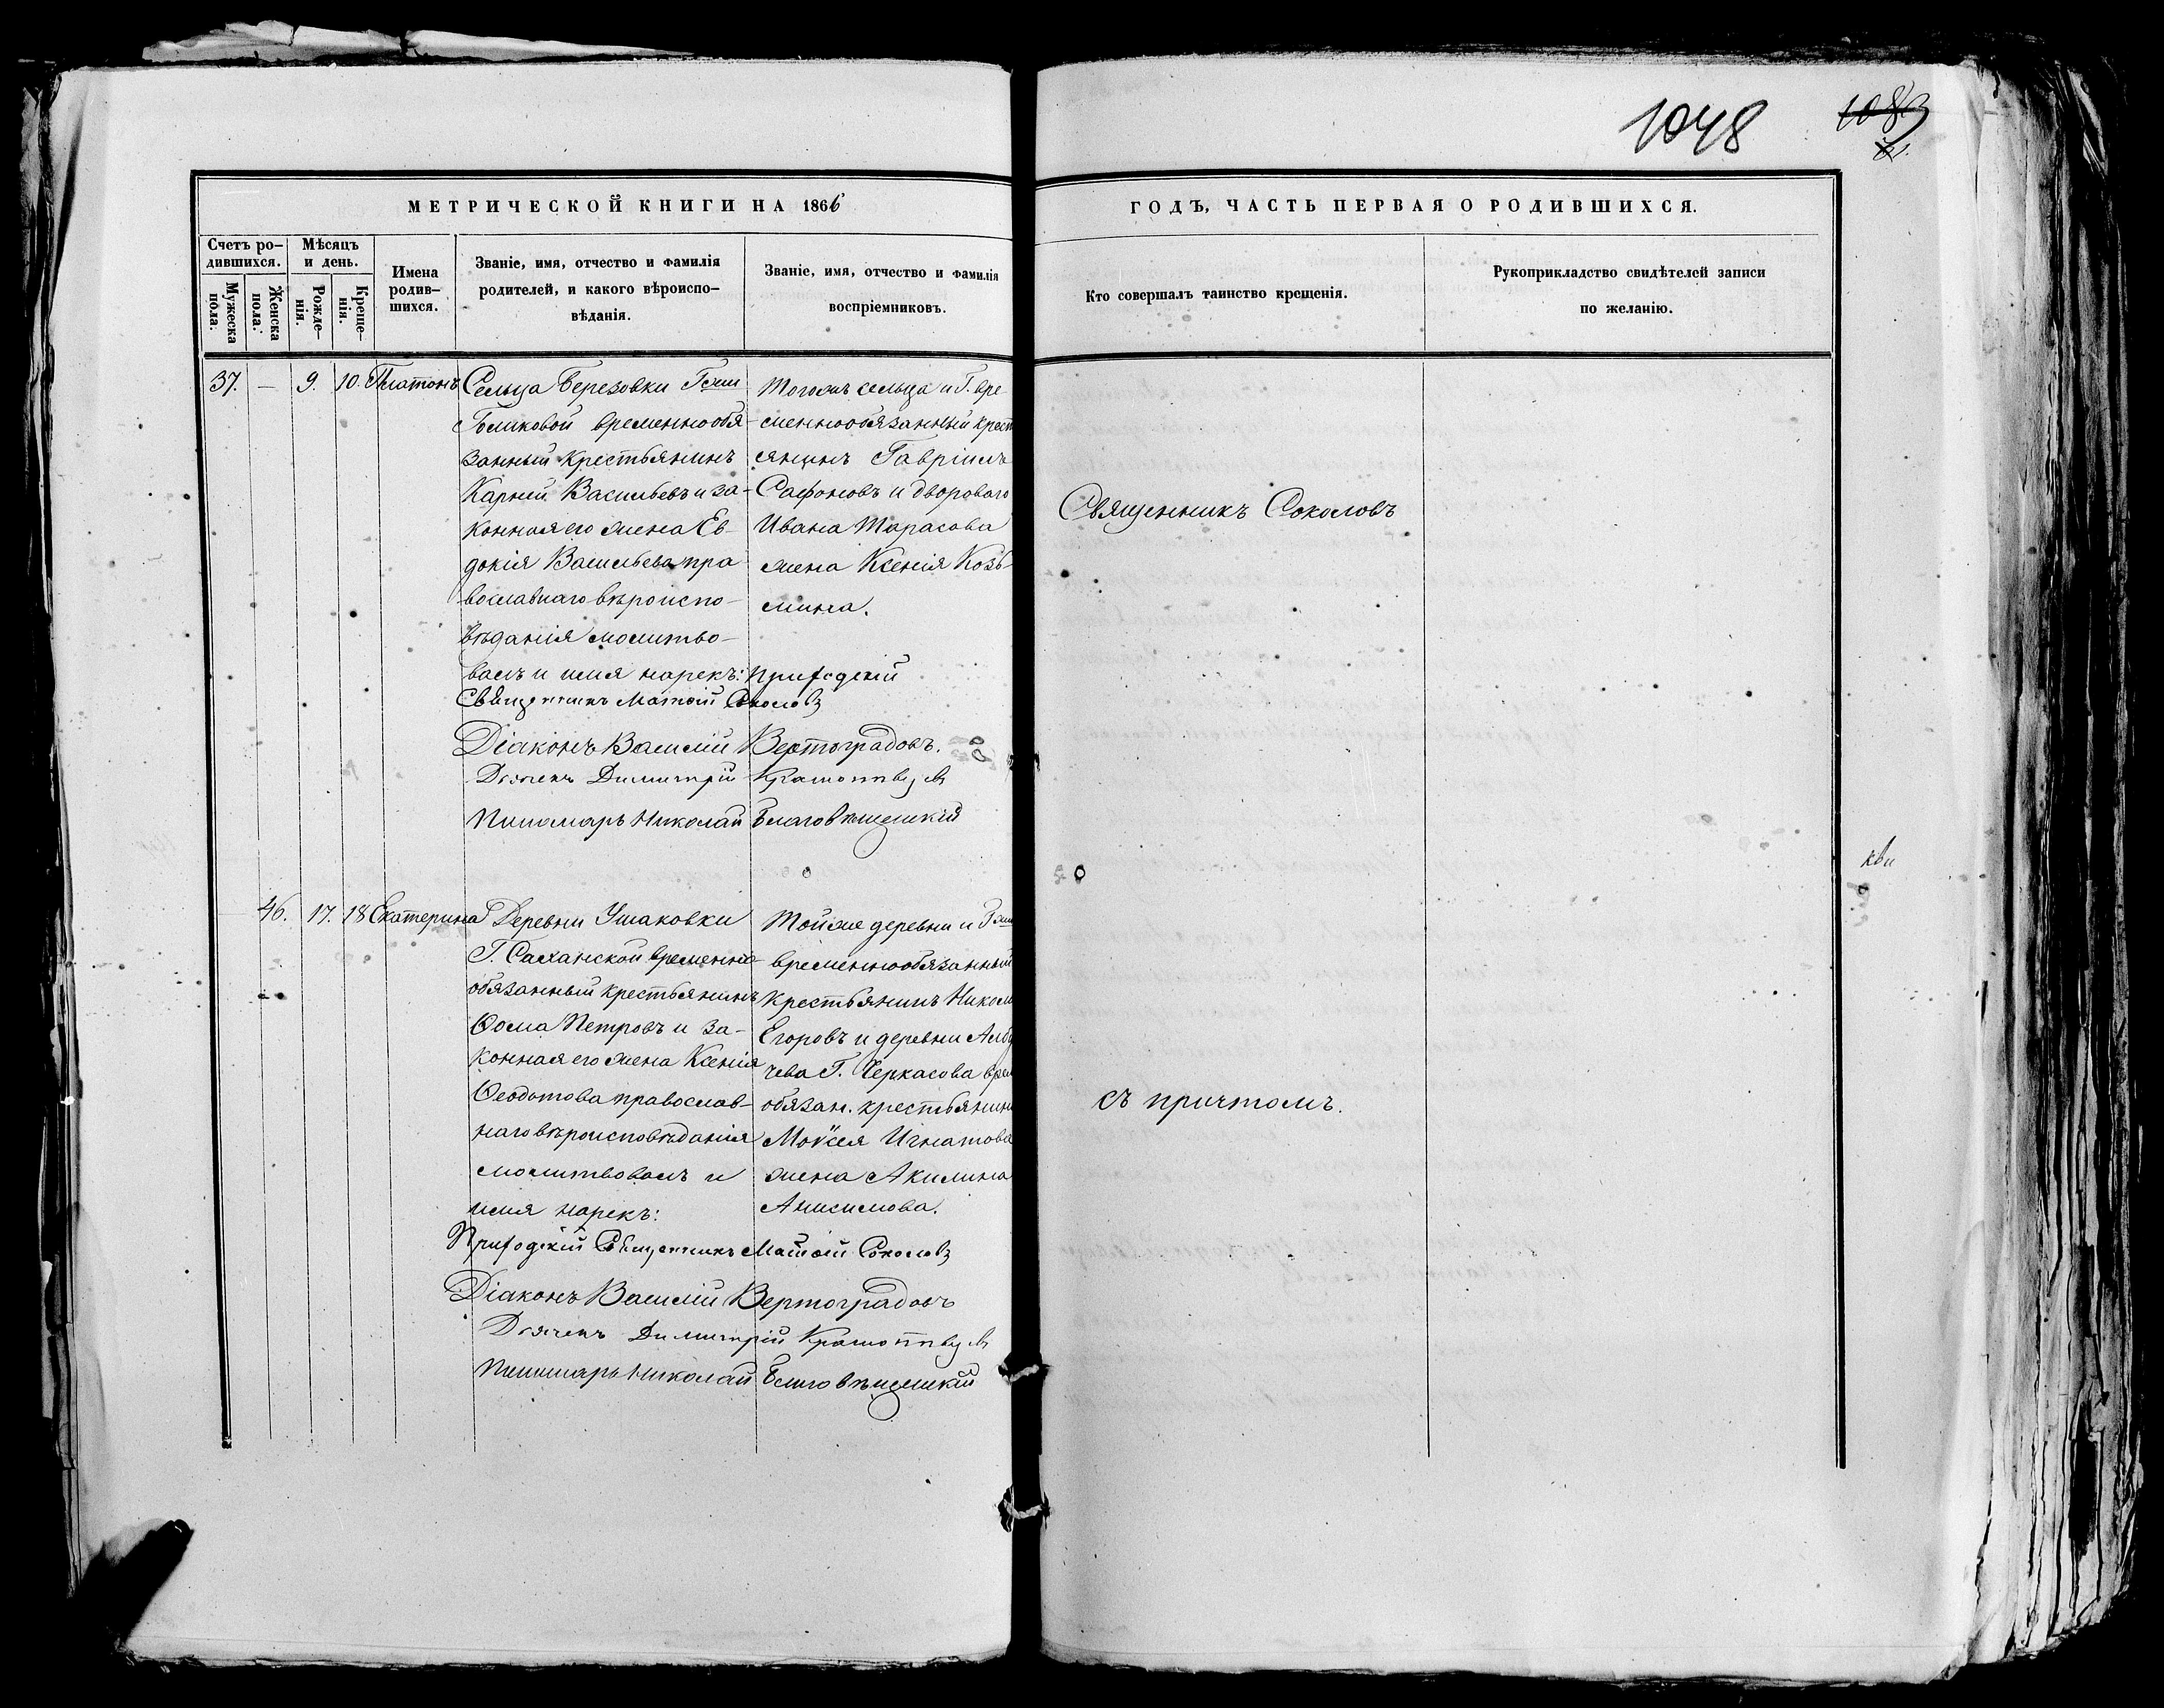 1048
1083
МЕТРИЧЕСКОЙ КНИГИ НА 1866
ГОДЪ, ЧАСТЬ ПЕРВАЯ О РОДИВШИХСЯ.
Счетъ ро-
дившихся.
Мужеска
пола.
Женска
пола.
Мѣсяцъ
и день.
Рожде-
нія.
Креще-
нія.
Имена
родив-
шихся.
Званіе, имя, отчество и фамилія
родителей, и какого вѣроиспо-
вѣданія.
Званіе, имя, отчество и фамилія
воспріемниковъ.
Кто совершалъ таинство крещенія.
Рукоприкладство свидѣтелей записи
по желанію.
37. — 9. 10. Платонъ
Сельца Березовки Гжи
Голиковой временнообя-
занный крестьянинъ
Карпій Васильевъ и за-
конная его жена Ев-
докія Васильева пра
вославнаго вѣроиспо-
вѣданія молитво-
валъ и имя нарекъ:
Тогожъ сельца и Г. вре
меннообязанный крест
янинъ Гавріилъ
Сафоновъ и двороваго
Ивана Тарасова
жена Ксенія Козь-
мина.
Священникъ Соколовъ
Приходскій
Священникъ Матѳій Соколовъ
Діаконъ Василій Вертоградовъ.
Дьячекъ Димитрій
Пономарь Николай Благовѣщенскій
кви
46. 17. 18 Екатерина
Деревни Ушаковки
Г. Саханской временно-
обязанный крестьянинъ
Ѳома Петровъ и за-
конная его жена Ксенія
Ѳеодотова православ-
наго вѣроисповѣданія
молитвовалъ и
имя нарекъ:
Тойже деревни и Гжи
временнообязанный
крестьянинъ Никол
Егоровъ и деревни
чева Г. Черкасова врем
обязан. крестьянин
Моѵсея Игнатова
жена Акилина
Анисимова.
съ причтомъ.
Приходскій Священникъ Матѳій Соколовъ
Діаконъ Василій Вертоградовъ
Дьячекъ Димитрій
Пономарь Николай Благовѣщенскій